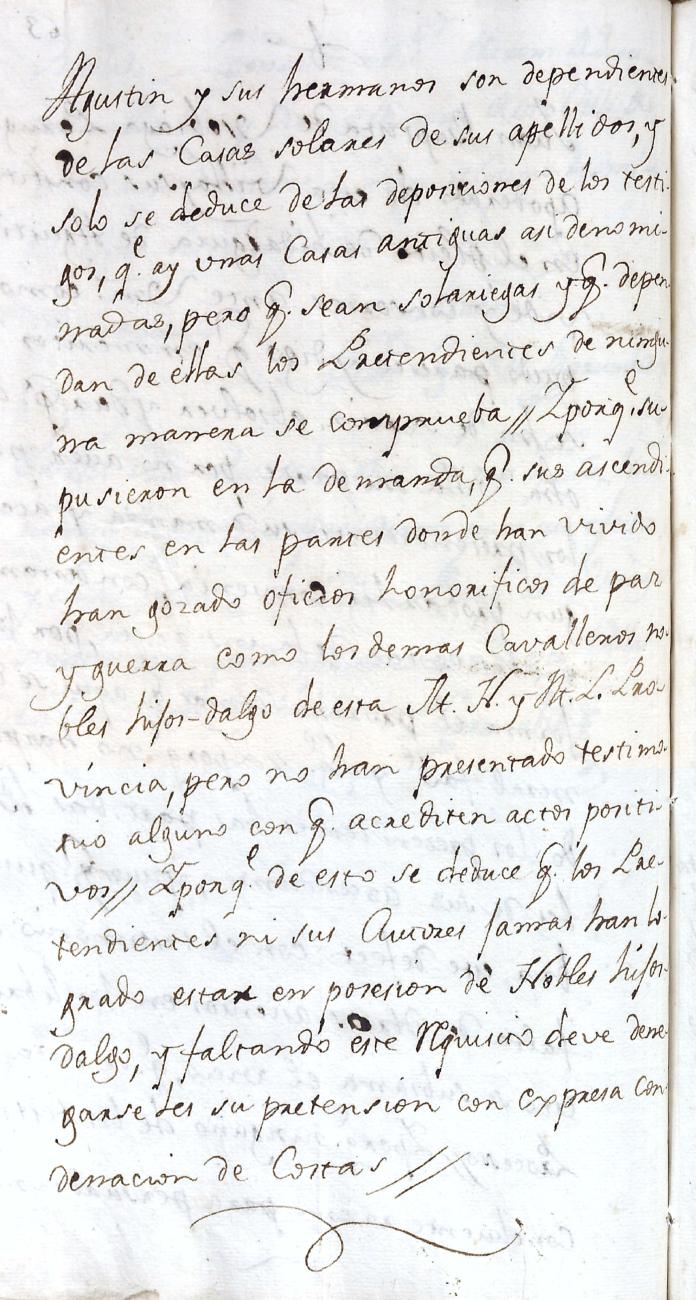 Agustin y sus hermanos son dependientes
de las Casas solares de sus apellidos, y
solo se deduce de las deposiciones de los testi-
gos, q.e ay unas Casas antiguas asi denomi-
nadas, pero q. sean solariegas y q. depen-
dan de ellas los Pretendientes de ningu-
na manera se comprueba // Yporq.e su-
pusieron en la demanda, q. sus ascendi-
entes en las partes donde han vivido
han gozado oficios honorificos de paz
y guerra como los demas Cavalleros no-
bles hijos-dalgo de esta M. N. y M. L. Pro-
vincia, pero no han presentado testimo-
nio alguno con q. acrediten actos positi-
vos // Yporq.e de esto se deduce q. los Pre-
tendientes ni sus Autores jamas han lo-
grado estar en posesion de Nobles hijos-
dalgo, y faltando este requisito deve dene-
garseles su pretension con expresa con-
denacion de Costas //